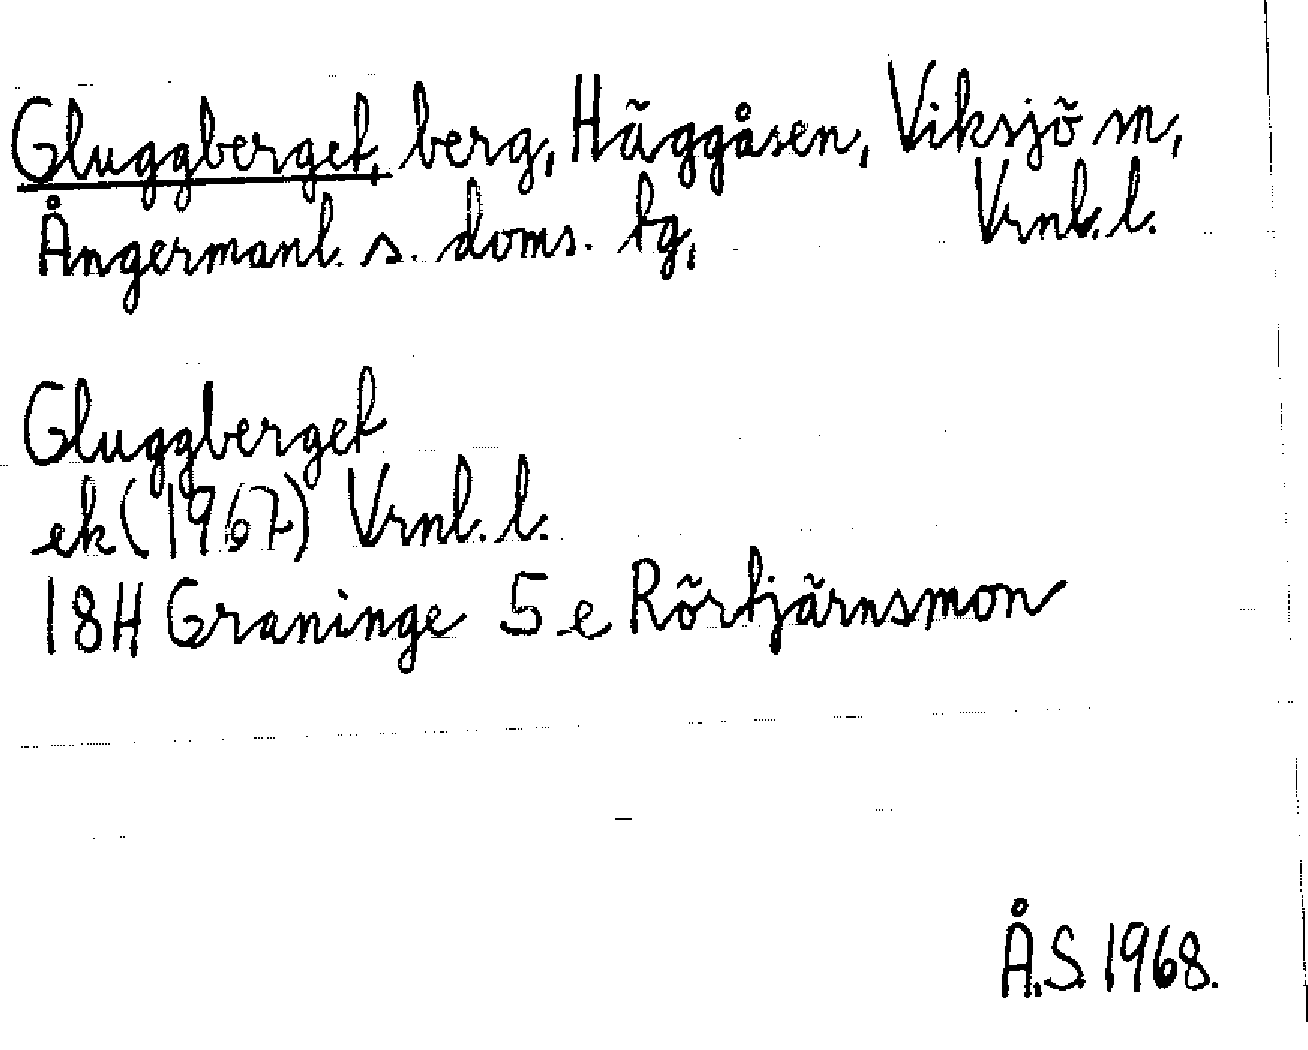 Gluggberget, berg, Häggåsen, Viksjö sn,
Ångermanl. s. doms. tg, Vrnl. l.
Gluggberget
ek (1967) Vrnl. l.
18H Graninge 5 e Rörtjärnsmon
Å.S. 1968.